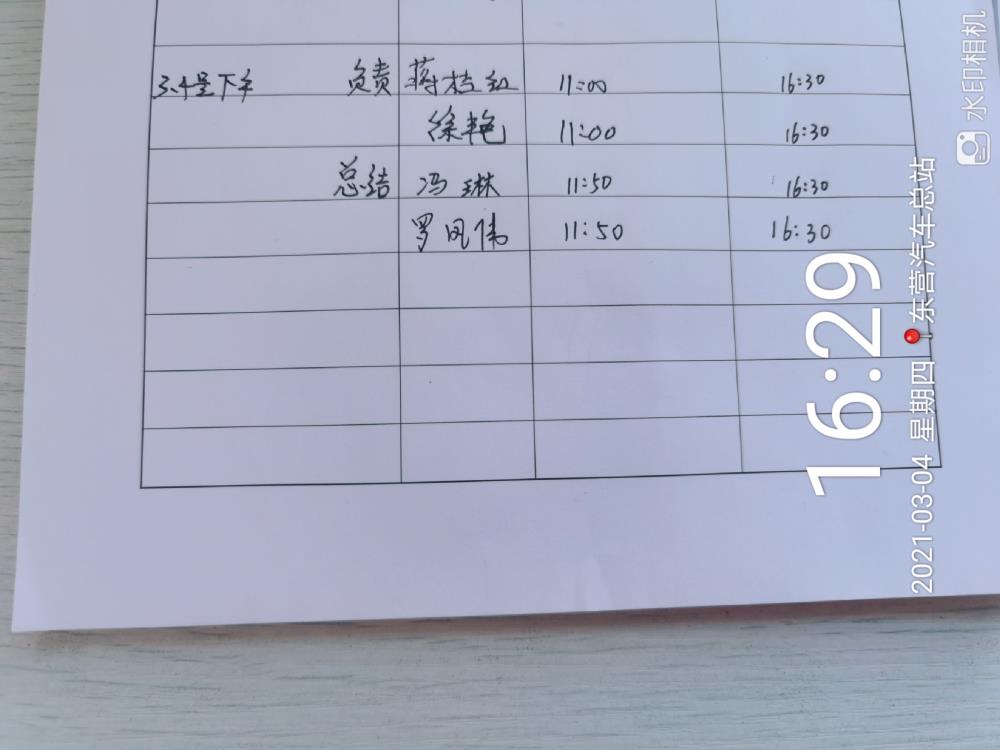 3.4号下午 负责 蒋桂红 11:00 16:30
徐艳 11:00 16:30
总结 冯琳 11:50 16:30
罗凤伟 11:50 16:30
16:29
2021-03-04 星期四 东营汽车总站
水印相机